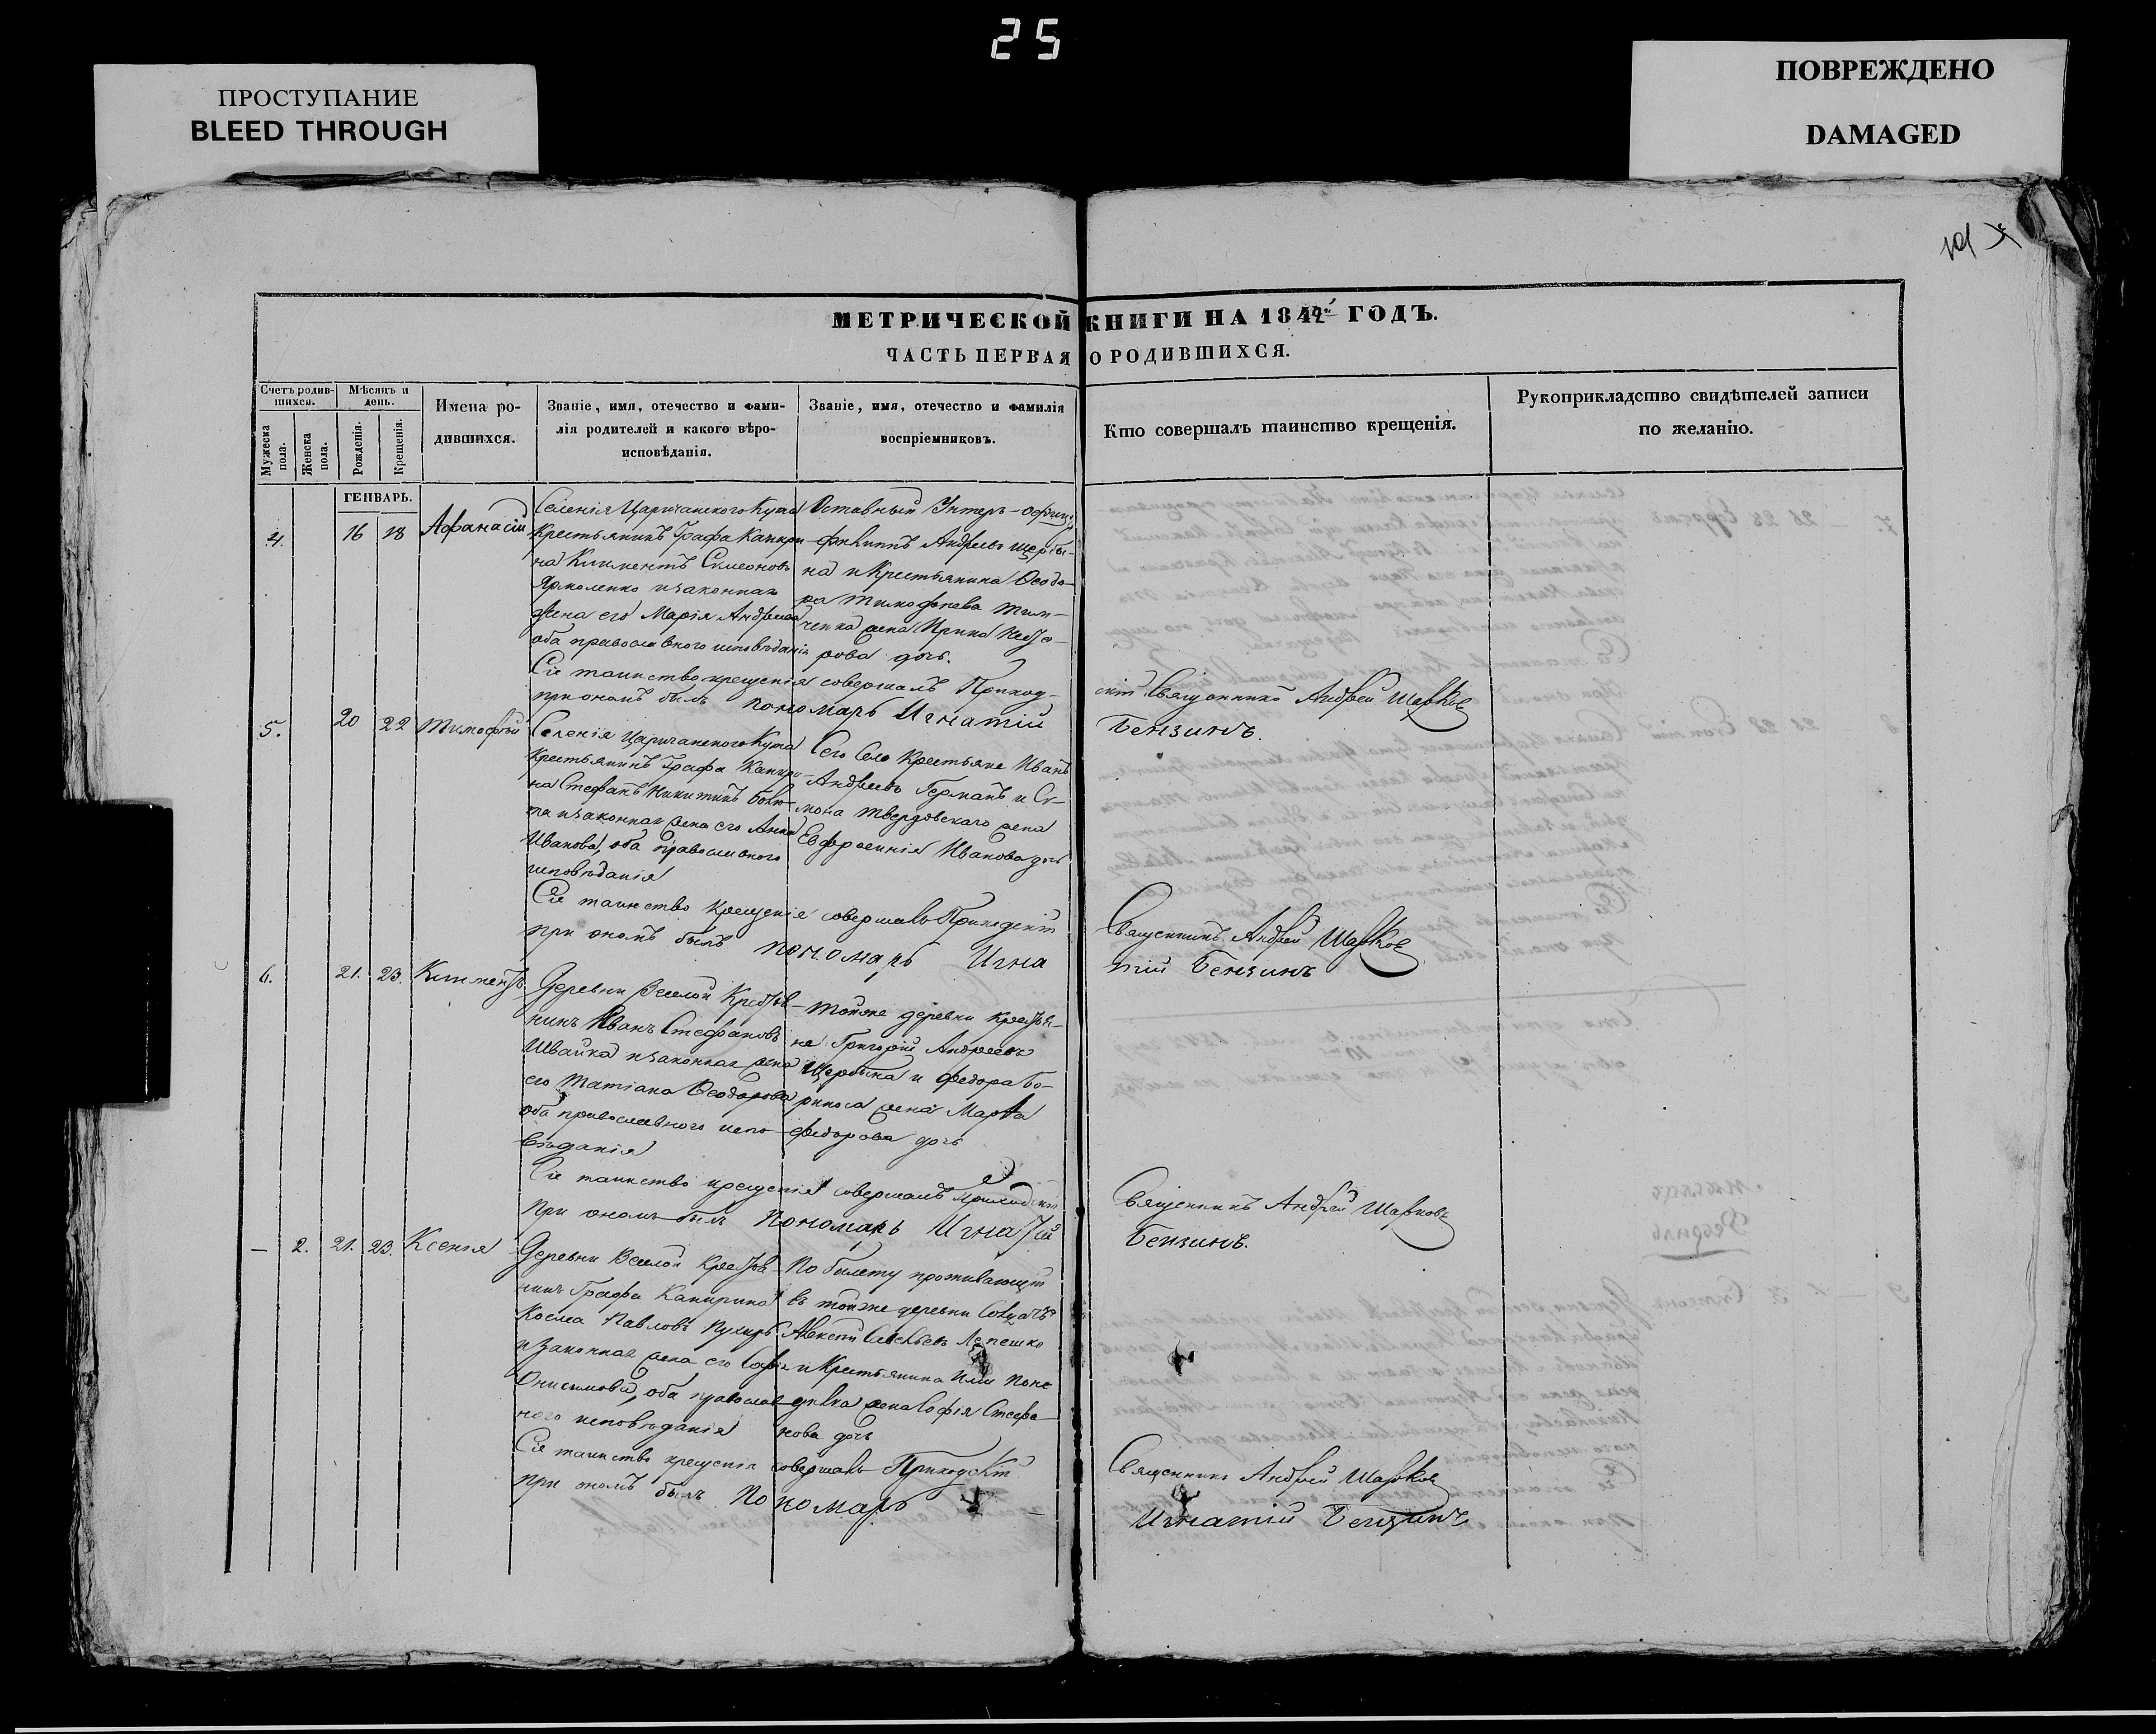 25
ПРОСТУПАНИЕ
BLEED THROUGH
ПОВРЕЖДЕНО
DAMAGED
МЕТРИЧЕСКОЙ КНИГИ НА 1842й ГОДЪ.
ЧАСТЬ ПЕРВАЯ О РОДИВШИХСЯ.
Счетъ родив-
шихся.
Мужеска
пола.
Женска
пола.
Мѣсяцъ и
день.
Рожденія.
Крещенія.
Имена ро-
дившихся.
Званіе, имя, отечество и фами-
лія родителей и какого вѣро-
исповѣданія.
Званіе, имя, отечество и фамилія
воспріемниковъ.
Кто совершалъ таинство крещенія.
Рукоприкладство свидѣтелей записи
по желанію.
ГЕНВАРЬ.
4. 16 18 Афанасій
Селенія Царичанскаго Кута
Крестьянинъ Графа Канкри-
на Климентъ Симеоновъ
Ярмоленко и законная
жена его Марія Андреева
оба православного исповѣданія
Отставный Унтеръ-офице
Филиппъ Андреевъ Щерби-
на и Крестьянина Ѳеодо-
ра Тимофѣева Тим-
ченка жена Ирина Несто-
рова дочь.
Сіе таинство крещенія совершалъ Приход-
скій Священникъ Андрей Шарков
при ономъ былъ Пономарь Игнатій
Бензинъ.
5. 20 22 Тимофѣй
Селенія Царичанского Кута
Крестьянинъ Графа Канкри-
на Стефанъ Никитинъ
та и законная жена его Анна
Иванова, оба православного
исповѣданія
Сего Села Крестьяне Иванъ
Андреевъ Германъ и Си-
мона Твердовскаго жена
Евфросинія Иванова дочь
Сіе таинство крещенія совершалъ Приходскій
Священникъ Андрей Шарков
при ономъ былъ Пономарь Игна
тій Бензинъ
6. 21. 23. Климентъ
Деревни Веселой Крестья-
нинъ Иванъ Стефановъ
Швайка и законная жена
его Татіана Ѳеодорова
оба православного испо-
вѣданія
Тойже деревни Крестья-
не Григорій Андреевъ
Щербина и Федора Бо-
риноса жена Марѳа
Федорова дочь
Сіе таинство крещенія совершалъ Приходскій
Священникъ Андрей Шарковъ
При ономъ былъ Пономарь Игнатій
Бензинъ.
— 2. 21. 23. Ксенія
Деревни Веселой Крестья-
нинъ Графа Канкрина
Косма Павловъ Пухирь
и законная жена его Софія
Онисимова, оба православ
ного исповѣданія
По билету проживающій
въ тойже деревни Солдатъ
Алексѣй Савельевъ Лепешко
и Крестьянина Ильи Поне
дилка жена Софія Стефа-
нова дочь
Сіе таинство крещенія совершалъ Приходскій
Священникъ Андрей Шарков
при ономъ былъ Пономарь
Игнатій Бензинъ